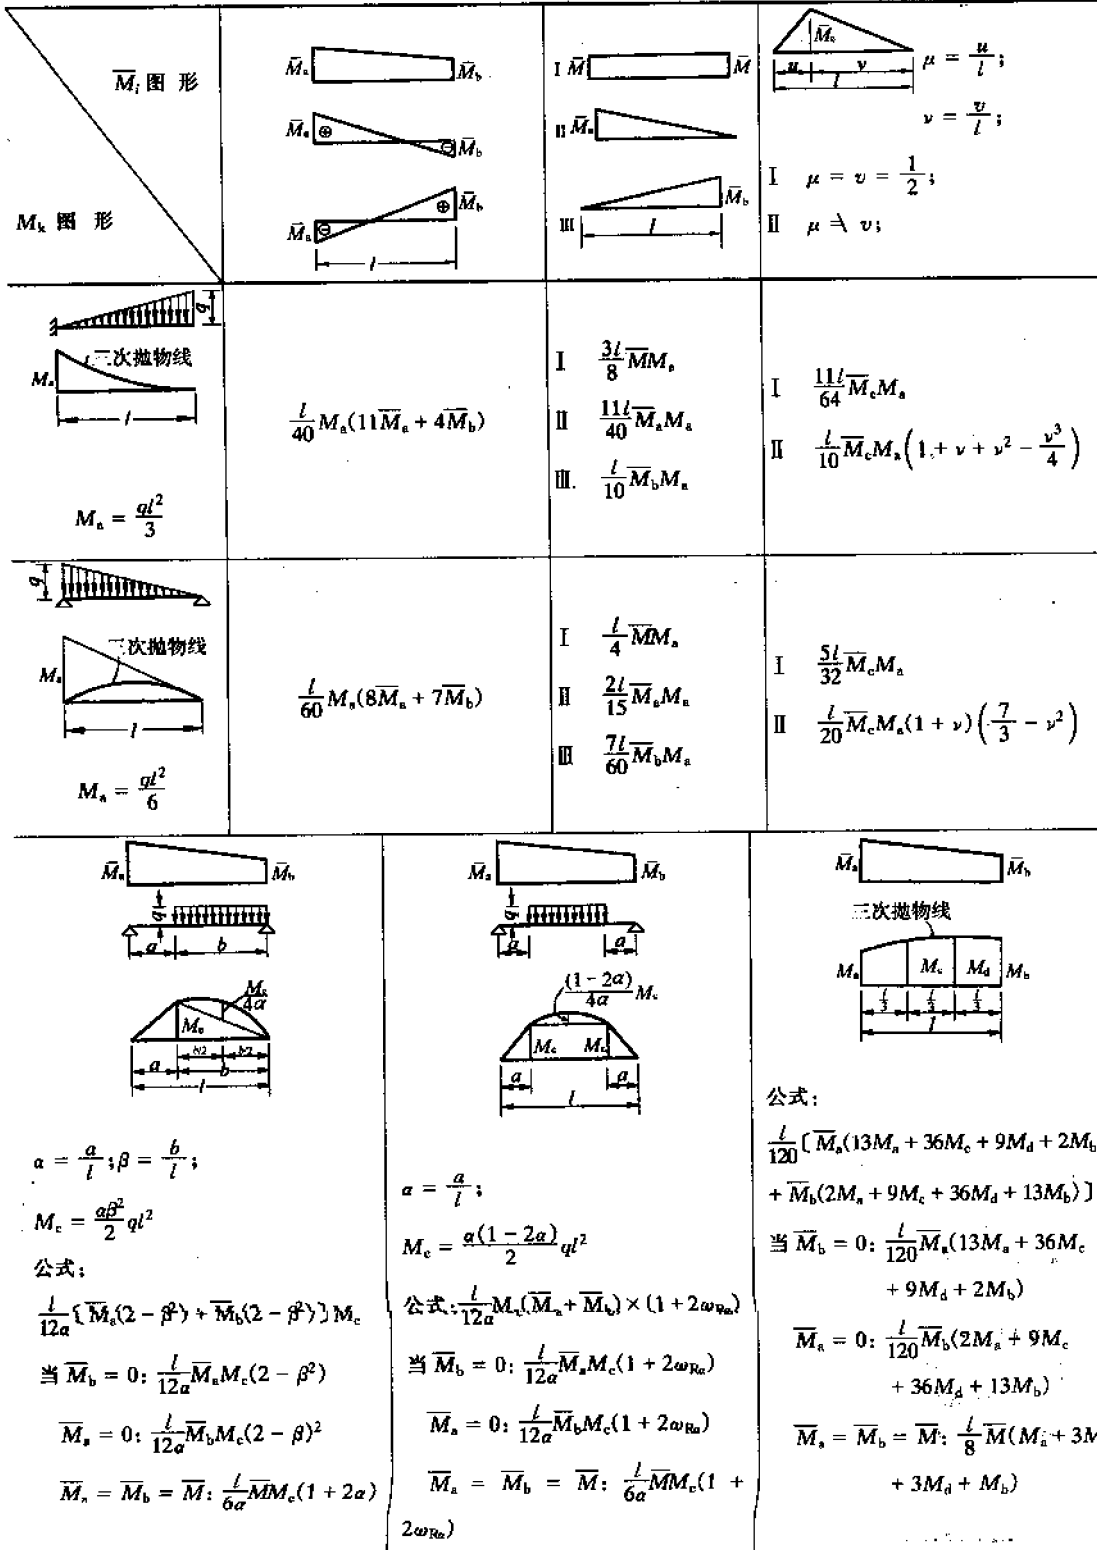 M̄ᵢ 图 形
Mₖ 图 形
M̄ₐ M̄_b
M̄ₐ ⊕ ⊖ M̄_b
M̄ₐ ⊖ ⊕ M̄_b
l
Ⅰ M̄ M̄
Ⅱ M̄ₐ
Ⅲ M̄_b
l
M̄_c
u v
l
μ = u/l;
ν = v/l;
Ⅰ μ = υ = 1/2;
Ⅱ μ ≠ υ;
q
三次抛物线
Mₐ
l
Mₐ = ql²/3
l/40 Mₐ(11M̄ₐ + 4M̄_b)
Ⅰ 3l/8 M̄Mₐ
Ⅱ 11l/40 M̄ₐMₐ
Ⅲ. l/10 M̄_bMₐ
Ⅰ 11l/64 M̄_cMₐ
Ⅱ l/10 M̄_cMₐ(1 + ν + ν² − ν³/4)
q
三次抛物线
Mₐ
l
Mₐ = ql²/6
l/60 Mₐ(8M̄ₐ + 7M̄_b)
Ⅰ l/4 M̄Mₐ
Ⅱ 2l/15 M̄ₐMₐ
Ⅲ 7l/60 M̄_bMₐ
Ⅰ 5l/32 M̄_cMₐ
Ⅱ l/20 M̄_cMₐ(1 + ν)(7/3 − ν²)
M̄ₐ M̄_b
q
a b
M_c/4α
M_c
b/2 b/2
a b
l
α = a/l; β = b/l;
M_c = αβ²/2 ql²
公式:
l/12α [M̄ₐ(2 − β²) + M̄_b(2 − β²)]M_c
当 M̄_b = 0: l/12α M̄ₐM_c(2 − β²)
M̄ₐ = 0: l/12α M̄_bM_c(2 − β)²
M̄ₐ = M̄_b = M̄: l/6α M̄M_c(1 + 2α)
M̄ₐ M̄_b
q
a a
(1 − 2α)/4α M_c
M_c M_c
a a
l
α = a/l;
M_c = α(1 − 2α)/2 ql²
公式: l/12α M_c(M̄ₐ + M̄_b) × (1 + 2ω_Rα)
当 M̄_b = 0: l/12α M̄ₐM_c(1 + 2ω_Rα)
M̄ₐ = 0: l/12α M̄_bM_c(1 + 2ω_Rα)
M̄ₐ = M̄_b = M̄: l/6α M̄M_c(1 +
2ω_Rα)
M̄ₐ M̄_b
三次抛物线
Mₐ M_c M_d M_b
l/3 l/3 l/3
l
公式:
l/120 [M̄ₐ(13Mₐ + 36M_c + 9M_d + 2M_b
+ M̄_b(2Mₐ + 9M_c + 36M_d + 13M_b)]
当 M̄_b = 0: l/120 M̄ₐ(13Mₐ + 36M_c
+ 9M_d + 2M_b)
M̄ₐ = 0: l/120 M̄_b(2Mₐ + 9M_c
+ 36M_d + 13M_b)
M̄ₐ = M̄_b = M̄: l/8 M̄(Mₐ + 3M
+ 3M_d + M_b)